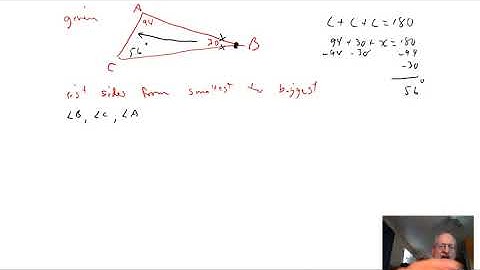 given
A
94
30
B
56°
C
∠ + ∠ + ∠ = 180
94 + 30 + x = 180
-94 -30 -94
-30
56°
list sides from smallest to biggest
∠B, ∠C, ∠A